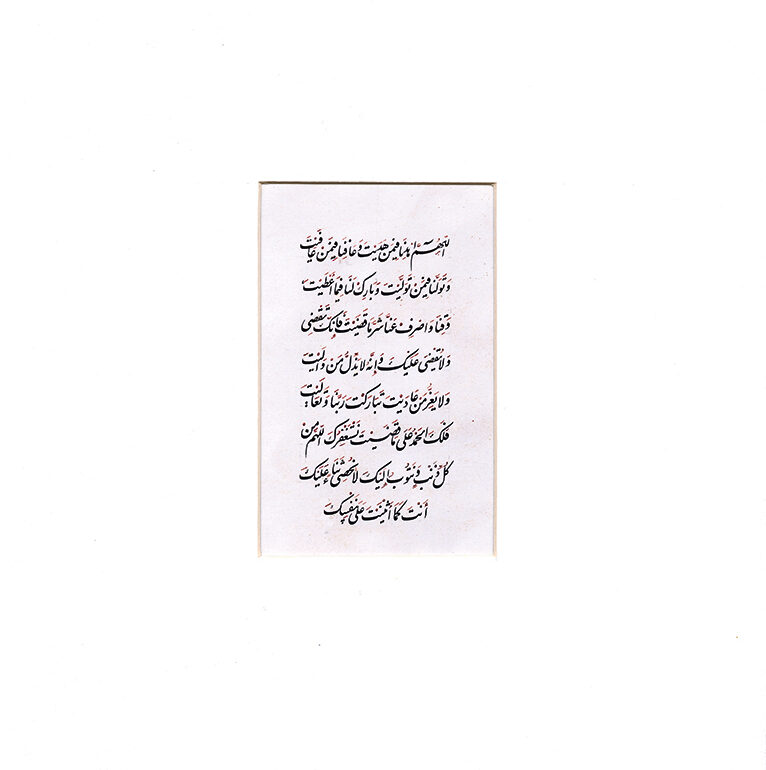 اللهم اهدنا فيمن هديت وعافنا فيمن عافيت
وتولنا فيمن توليت وبارك لنا فيما أعطيت
وقنا واصرف عنا شر ما قضيت فإنك تقضي
ولا يقضى عليك وإنه لا يذل من واليت
ولا يعز من عاديت تباركت ربنا وتعاليت
فلك الحمد على ما قضيت نستغفرك اللهم من
كل ذنب ونتوب إليك لا نحصي ثناء عليك
أنت كما أثنيت على نفسك